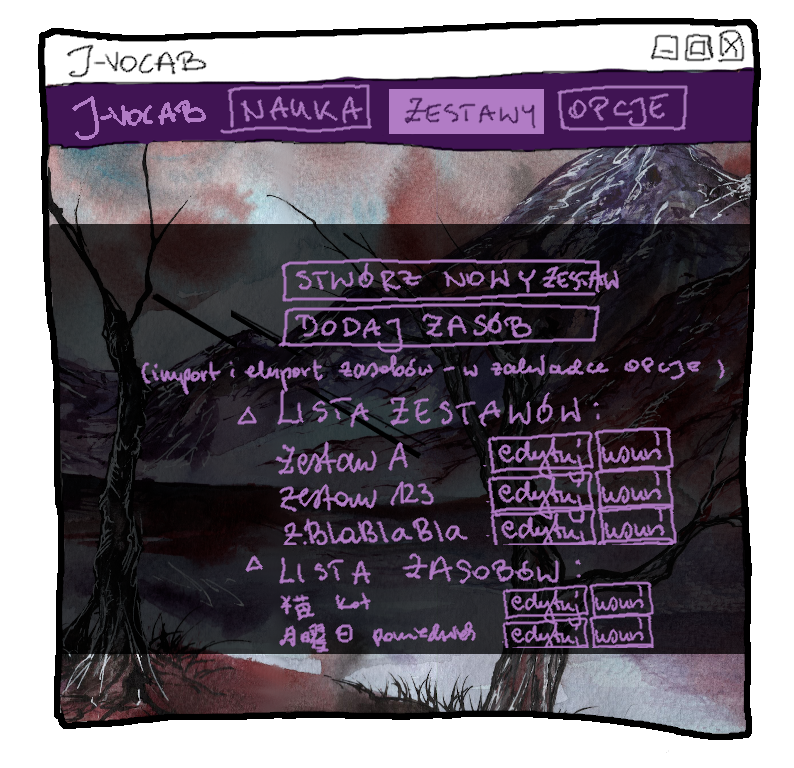 J-VOCAB
J-VOCAB NAUKA ZESTAWY OPCJE
STWÓRZ NOWY ZESTAW
DODAJ ZASÓB
(import i eksport zasobów - w zakładce OPCJE)
△ LISTA ZESTAWÓW:
Zestaw A edytuj usuń
Zestaw 123 edytuj usuń
Z.BlaBlaBla edytuj usuń
△ LISTA ZASOBÓW:
猫 kot edytuj usuń
月曜日 poniedziałek edytuj usuń